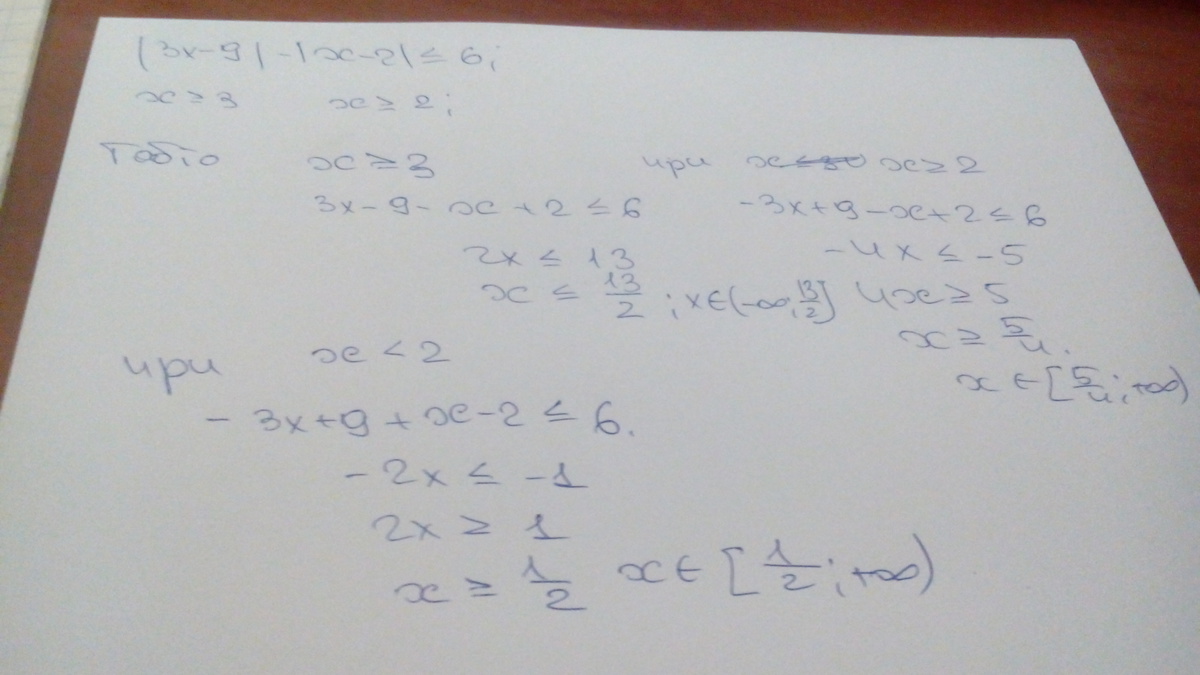 |3x-9|-|x-2| ≤ 6;
x ≥ 3 x ≥ 2;
Тобто x ≥ 3
3x-9-x+2 ≤ 6
2x ≤ 13
x ≤ 13/2 ; x ∈ (-∞; 13/2]
при x ≥ 2
-3x+9-x+2 ≤ 6
-4x ≤ -5
4x ≥ 5
x ≥ 5/4.
x ∈ [5/4; +∞)
при x < 2
-3x+9+x-2 ≤ 6.
-2x ≤ -1
2x ≥ 1
x ≥ 1/2 x ∈ [1/2; +∞)